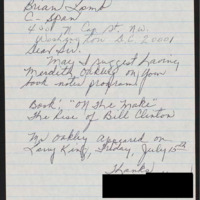 Brian Lamb
C-Span
400 N Cap St. N.W.
D.C. 20001
Dear Sir.
May I suggest having
Meredith Oakley on your
book notes program.
Book: "On The Make"
The Rise of Bill Clinton
Ms. Oakley appeared on
Larry King, Friday, July 15th
Thanks